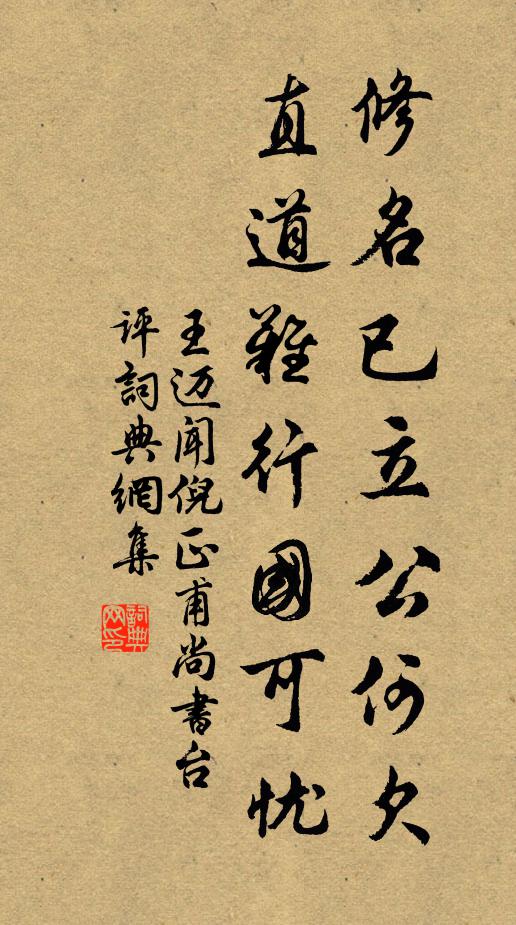 修名已立公何欠
直道难行國可忧
王迈闻倪正甫尚書台
评詞典網集
詞典网印